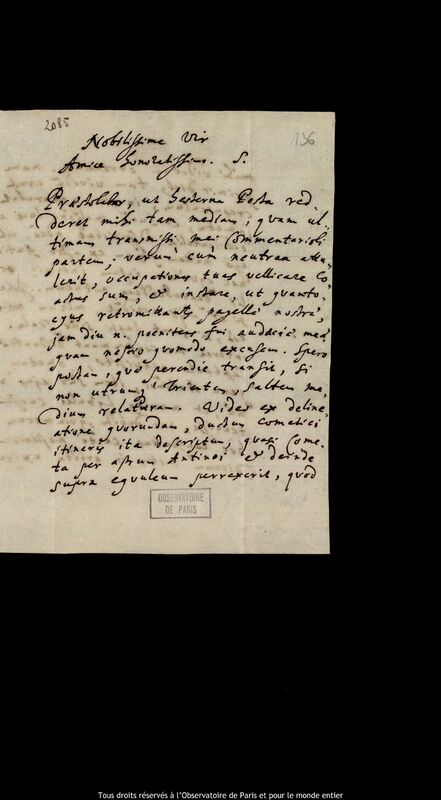 2085
136
Nobilissime Vir
Amice honoratissime. S.
Præstolabar, ut hesterna Posta red-
deret mihi tam mediam, quam ul-
timam transmissi mei Commentarioli
partem, verum cum neutram attu-
lerit, occupationes tuas vellicare co-
actus sum, & instare, ut quanto-
cyus retromittantur pagellæ nostræ,
jam diu n. poenitens fui audaciæ meæ
quam nescio quomodo excusem. Spero
postam, quæ perendie transit, si
non utrum, Trientem, saltem me-
dium relaturam. Video ex deline-
atione quorundam, ductum cometici
itineris ita descriptum, quasi Come-
ta per astrum Antinoi & deinde
supra equuleum perrexerit, quod
OBSERVATOIRE
DE PARIS
Tous droits réservés à l'Observatoire de Paris et pour le monde entier